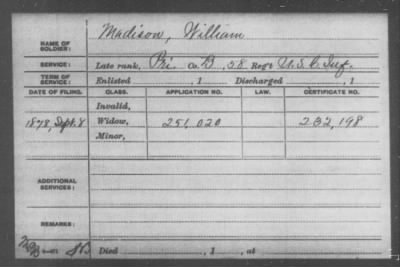 NAME OF SOLDIER: Madison, William
SERVICE: Late rank, Pri. Co. B, 58 Reg't U.S.C. Inf.
TERM OF SERVICE: Enlisted , 1 Discharged , 1
DATE OF FILING. CLASS. APPLICATION NO. LAW. CERTIFICATE NO.
Invalid,
1878, Sept. 8 Widow, 251,020 232,198
Minor,
ADDITIONAL SERVICES:
REMARKS:
Died , 1 , at